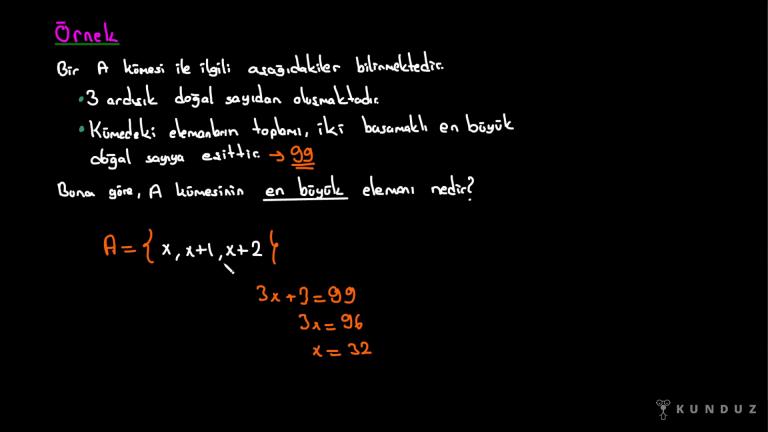 Örnek
Bir A kümesi ile ilgili aşağıdakiler bilinmektedir.
• 3 ardışık doğal sayıdan oluşmaktadır.
• Kümedeki elemanların toplamı, iki basamaklı en büyük
doğal sayıya eşittir. → 99
Buna göre, A kümesinin en büyük elemanı nedir?
A = { x, x+1, x+2 }
3x + 3 = 99
3x = 96
x = 32
KUNDUZ